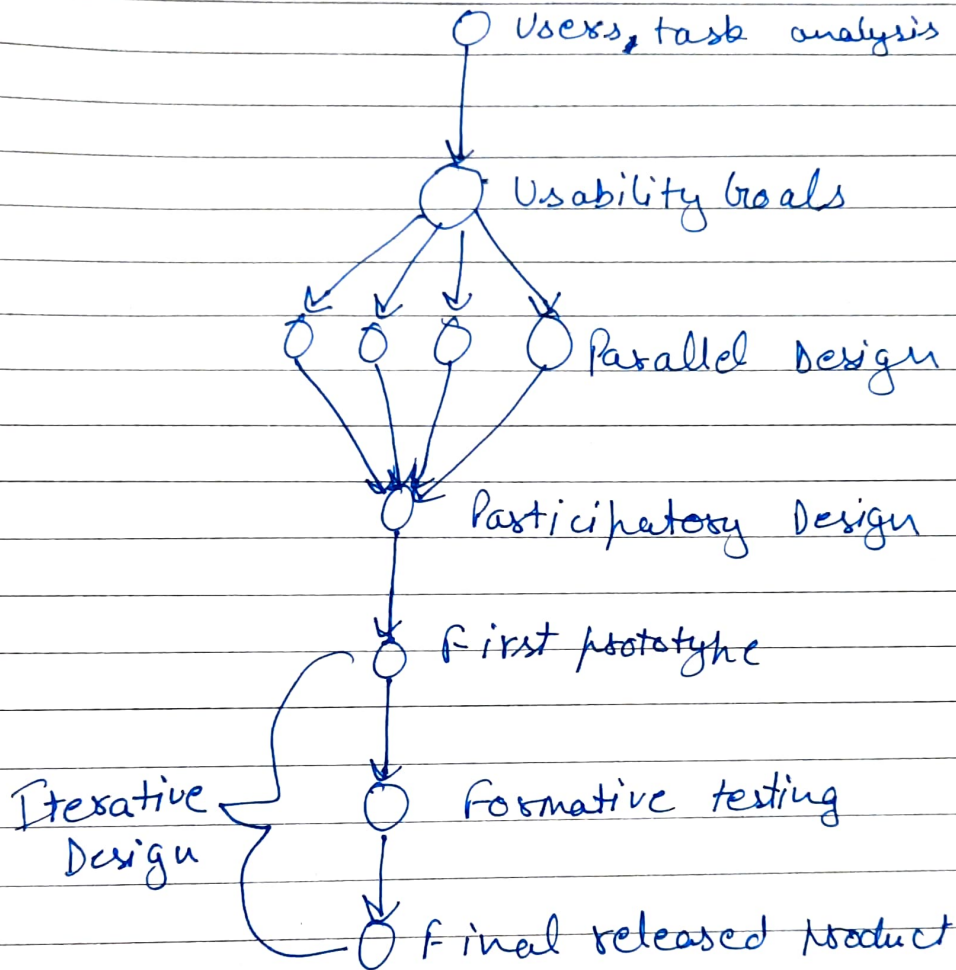 Users, task analysis
Usability Goals
Parallel Design
Participatory Design
First prototype
Iterative
Design
Formative testing
Final released product